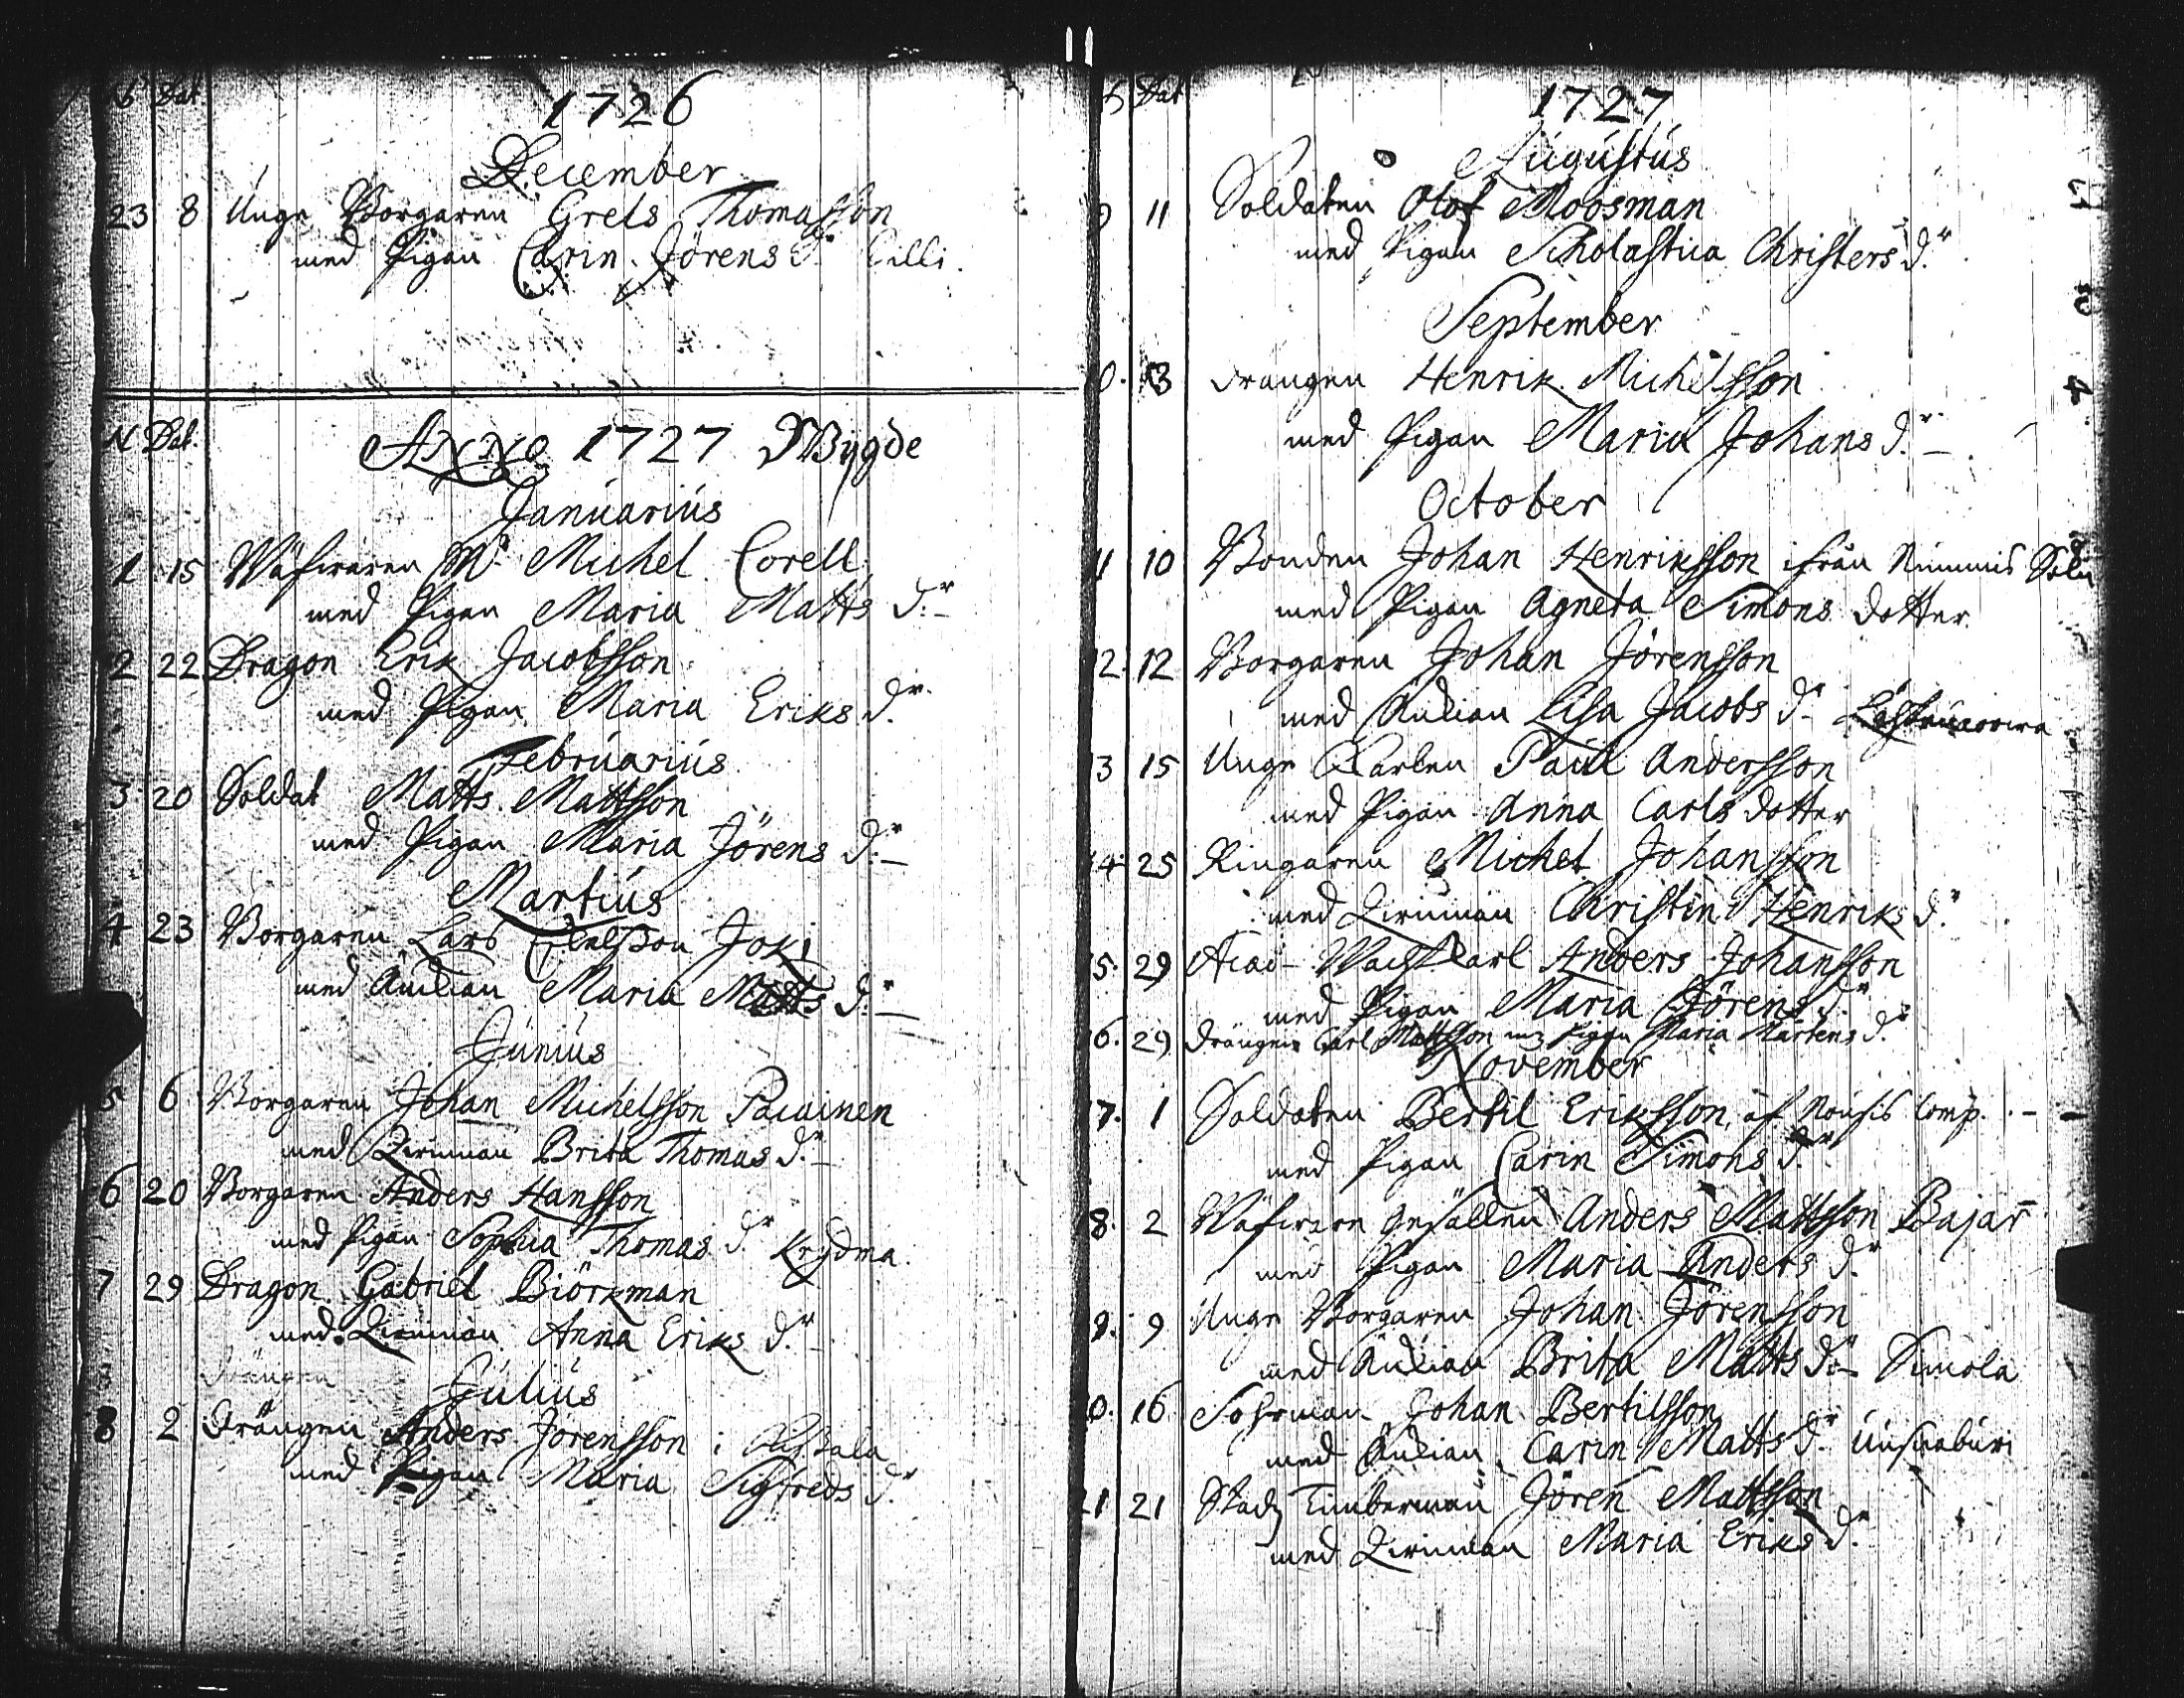 N Dat
1726
December
23 8 Unge Borgaren Grels Thomasson
med Pigan Carin Jörens dr Cilli
N Dat.
Anno 1727 Wygde
Januarius
1 15 Wäfwaren Mr Michel Corell
med Pigan Maria Matts dr
2 22 Dragon Erik Jacobsson
med Pigan Maria Eriks dr
Februarius
3 20 Soldat Matts Mattsson
med Pigan Maria Jörens dr
Martius
4 23 Borgaren Lars Joki
med Änkian Maria Matts dr
Junius
5 6 Borgaren Johan Michelsson Pacainen
med Qwinnan Brita Thomas dr
6 20 Borgaren Anders Hansson
med Pigan Sophia Thomas dr Krydma
7 29 Dragon Gabriel Biörkman
med Qwinnan Anna Eriks dr
Drängen
Julius
8 2 Drängen Anders Jörensson i
med Pigan Maria Sigfreds dr
Dat
1727
Augustus
9 11 Soldaten Olof Moosman
med Pigan Scholastica Christers dr
September
0. 13 Drängen Henrik Michelsson
med Pigan Maria Johans dr
October
11 10 Bonden Johan Henriksson ifrån Nummis
med Pigan Agneta Simons dotter
12. 12 Borgaren Johan Jörensson
med Änkian Lisa Jacobs dr
13 15 Unge Karlen Paul Andersson
med Pigan Anna Carls dotter
14. 25 Ringaren Michel Johansson
med Qwinnan Christin Henriks dr
15. 29 Acad- Wachtkarl Anders Johansson
med Pigan Maria Jörens dr
16. 29 Drängen Carl Mattsson med Pigan Maria Mårtens dr
November
17. 1 Soldaten Bertil Eriksson, af Nousis Comp.
med Pigan Carin Simons dr
18. 2 Wäfware gesällen Anders Mattsson Bajar
med Pigan Maria Anders dr
9. 9 Unge Borgaren Johan Jörensson
med Änkian Brita Matts dr Simola
0. 16 Johan Bertilsson
med Änkian Carin Matts dr
21 21 Stadz Timberman Jören Mattsson
med Qwinnan Maria Eriks dr